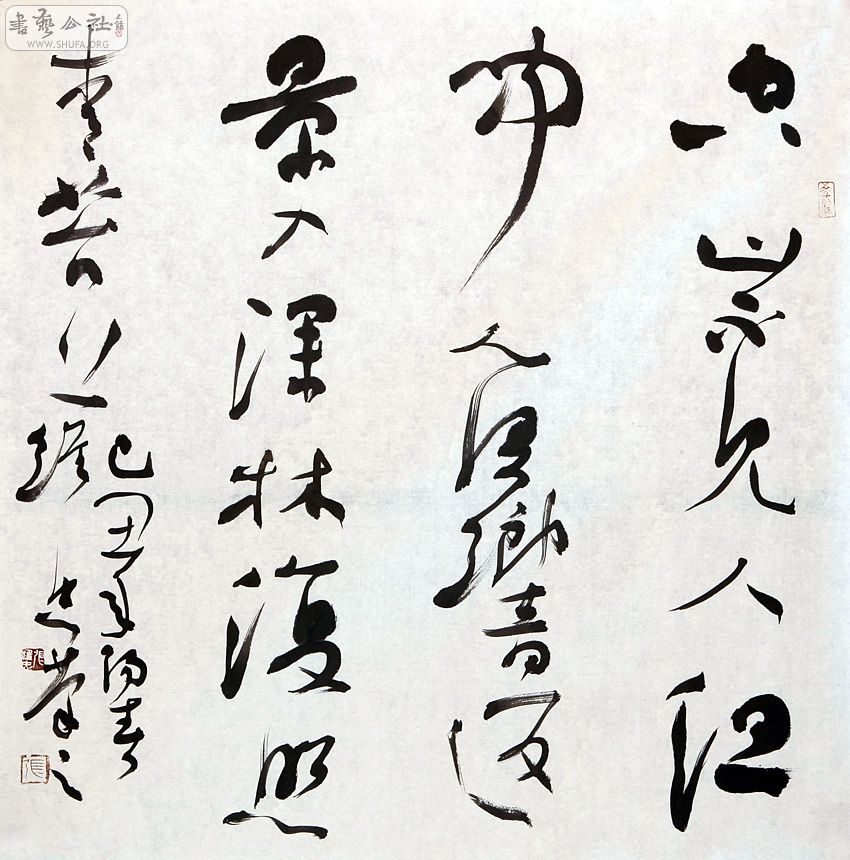 書藝公社
WWW.SHUFA.ORG
空山不見人但
聞人語響返
景入深林復照
青苔上
己丑年陽春